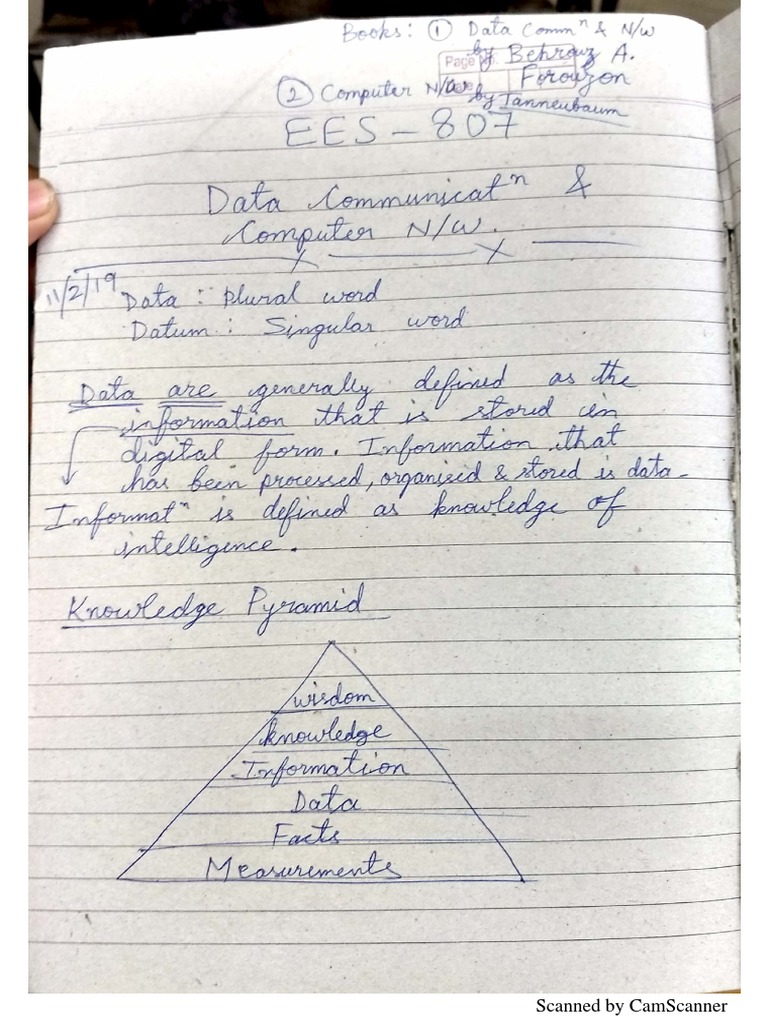 Books: ① Data Commⁿ & N/W
by Behrouz A.
Forouzon
Page No.
② Computer N/W
by Tanneubaum
EES - 807
Data Communicatⁿ &
Computer N/W.
11/2/19
Data : plural word
Datum : Singular word
Data are generally defined as the
information that is stored in
digital form. Information that
has been processed, organised & stored is data.
Informatⁿ is defined as knowledge of
intelligence.
Knowledge Pyramid
wisdom
knowledge
Information
Data
Facts
Measurements
Scanned by CamScanner